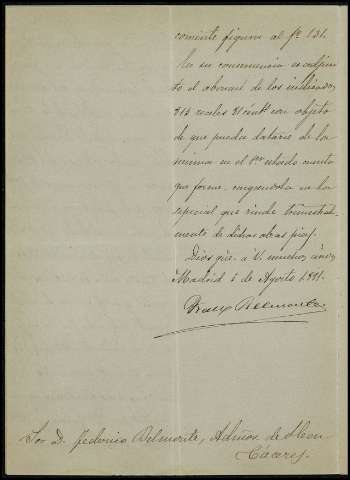 corriente figura al fº 131.
En su consecuencia es adjun
to el abonaré de los indicados
313 reales 21 cents con objeto
de que pueda datarse de la
misma en el 1er estado cuenta
que forme, cargandola en la
especial que rinde trimestral-
mente de dichas obras pias.
Dios gue. a V. muchos años
Madrid 5 de Agosto 1851.
Belmonte
Sor D. Federico Belmonte, Admor de
Cáceres.